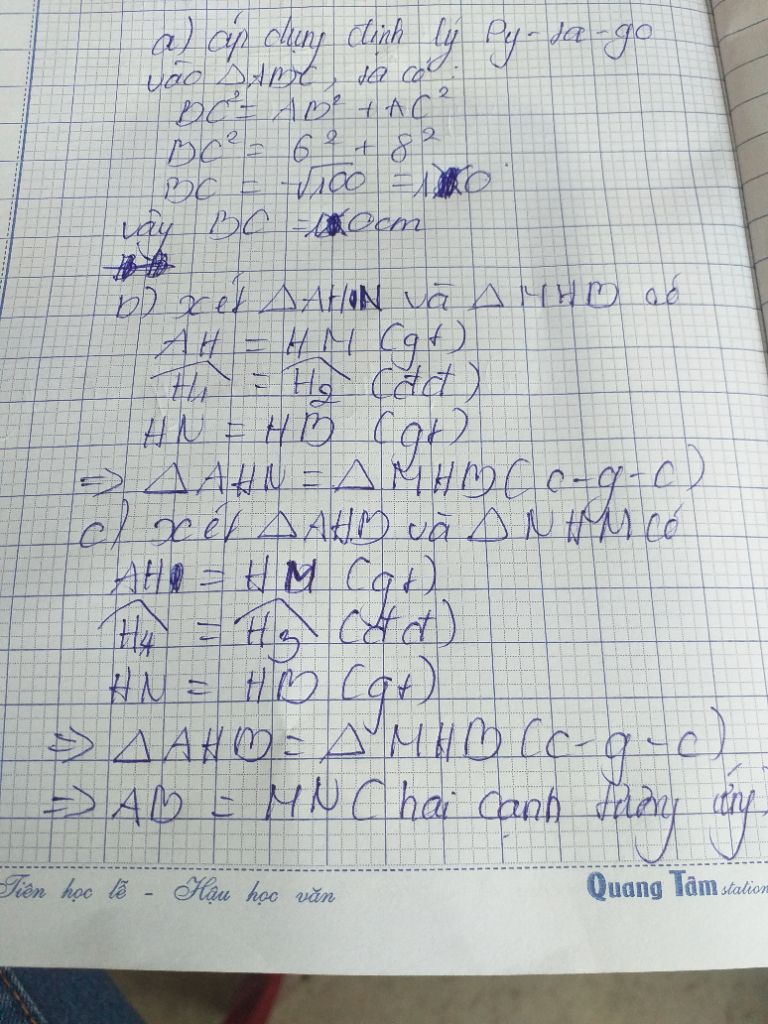 a) áp dụng định lý Py-ta-go
vào △ABC, ta có:
BC² = AB² + AC²
BC² = 6² + 8²
BC = √100 = 10
vậy BC = 10cm
b) xét △AHN và △MHB có
AH = HM (gt)
H₁ = H₂ (đđ)
HN = HB (gt)
=> △AHN = △MHB (c-g-c)
c) xét △AHB và △NHM có
AH = HM (gt)
H₄ = H₃ (đđ)
HN = HB (gt)
=> △AHB = △MHB (c-g-c)
=> AB = MN (hai cạnh tương ứng)
Tiên học lễ - Hậu học văn
Quang Tâm station